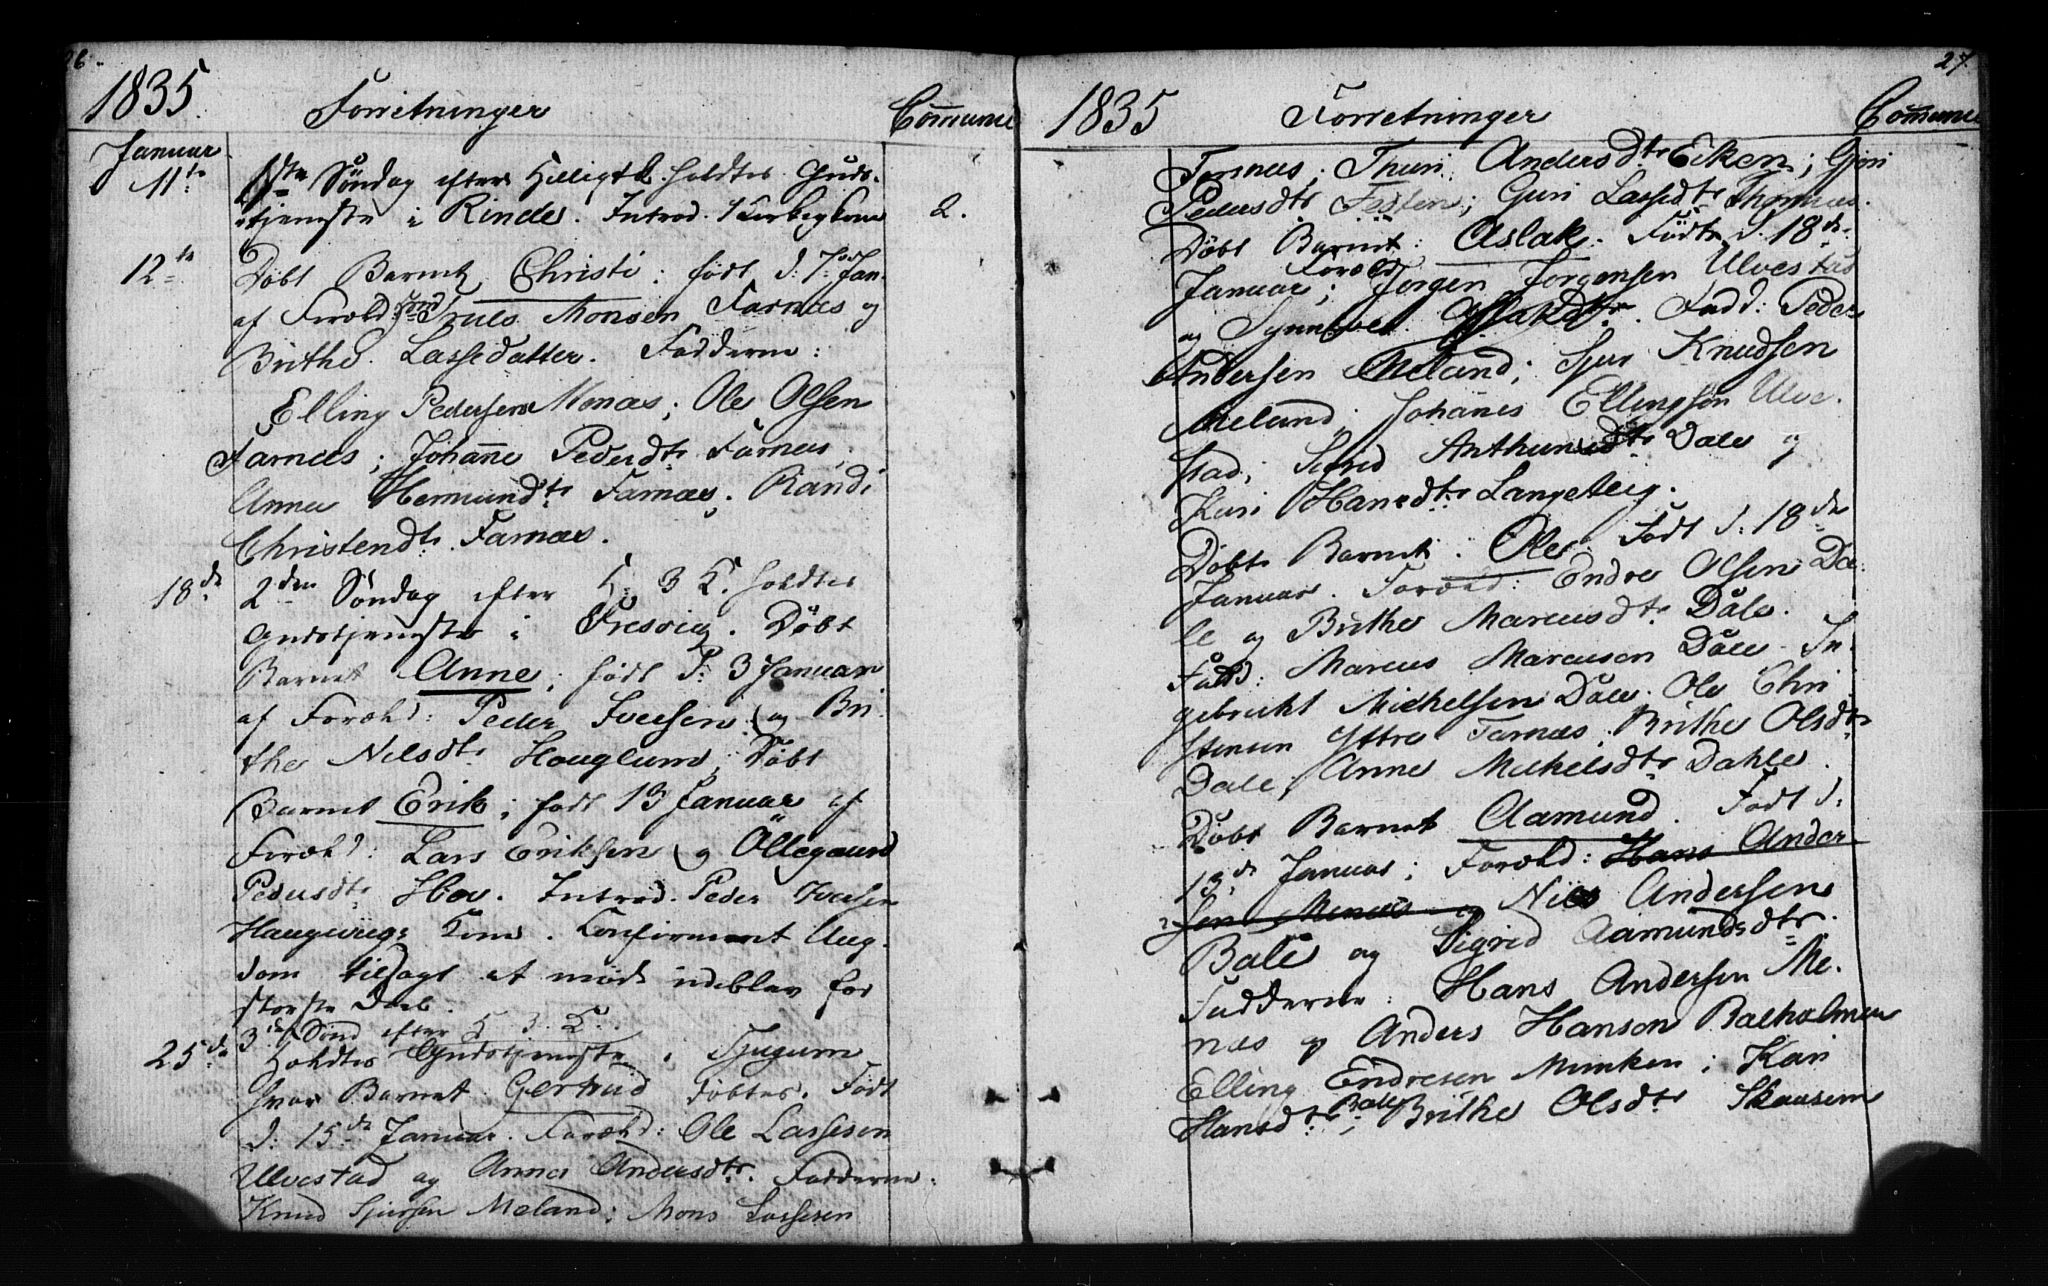 26.
1835. Forretninger Commune
Januar
11te 1ste Søndag efter Helligtr. holdtes Guds-
tjeneste i Rinde. Introd. 1 Kirkegkone 2.
12te Døbt Barnet Christi: født d: 7: Jan.
af Foræld: Truls Monsen Farnæs og
Brithe Lassedatter. Fadderne:
Elling Pedersen Menæs; Ole Olsen
Farnæs; Johanne Pedersdtr Farnæs;
Anna Hermundtr Farnæs; Randi
Christendtr Farnæs.
18de 2den Søndag efter H. 3 K. holdtes
Gudstjeneste i Fresvig. Døbt
Barnet Anne; født d: 3 Januar
af Foræld: Peder Iversen og Bri-
the Nilsdtr Houglum; Døbt
Barnet Erik; født 13 Januar af
Foræld: Lars Eriksen og Øllegaard
Pedersdtr Hov. Introd. Peder Iversen
Kone. Confirmeret Ung-
dom tilsagt at møde udeblev for
største Deel.
3die Sønd efter H. 3. K.
25de Holdtes Gudstjeneste i Tjugum
hvor Barnet Gertrud døbtes. Født
d: 15de Januar. Foræld: Ole Lassesen
Ulvestad og Anna Andersdtr. Fadderne:
Knud Sjursen Meland; Mons Lassesen
27.
1835 Forretninger Commune
Farnæs; Thuri Andersdtr Eiken; Gjøri
Pedersdtr; Guri Lassedtr
Døbt Barnet: Aslak. Født d. 18de
Januar; Foræld: Jørgen Jørgensen Ulvestad
og Synneve Aslaksdtr. Fadd: Peder
Andersen Meland; Sjur Knudsen
Meland; Johanes Ellingsøn Ulve-
stad; Sigrid Anthunsdtr Dale og
Kari Hansdtr Langeteig.
Døbt Barnet: Ole. Født d: 18de
Januar. Foræld: Endre Olsen Da-
le og Brithe Marcusdtr Dale.
Fadd: Marcus Marcuson Dale. In-
gebricht Michelsen Dale. Ole Chri-
stensen Yttre Farnæs; Brithe Olsdtr
Dale; Anne Michelsdtr Dahle.
Døbt Barnet Aamund. Født d:
18de Januar; Foræld: Hans Ander-
sen Menæs og Nils Andersen
Bale og Sigrid Aamundsdtr.
Fadderne: Hans Andersen Me-
næs og Anders Hanson Baleholmen
Elling Endresen Munken; Kari
Hansdtr Bale; Brithe Olsdtr Skaasem